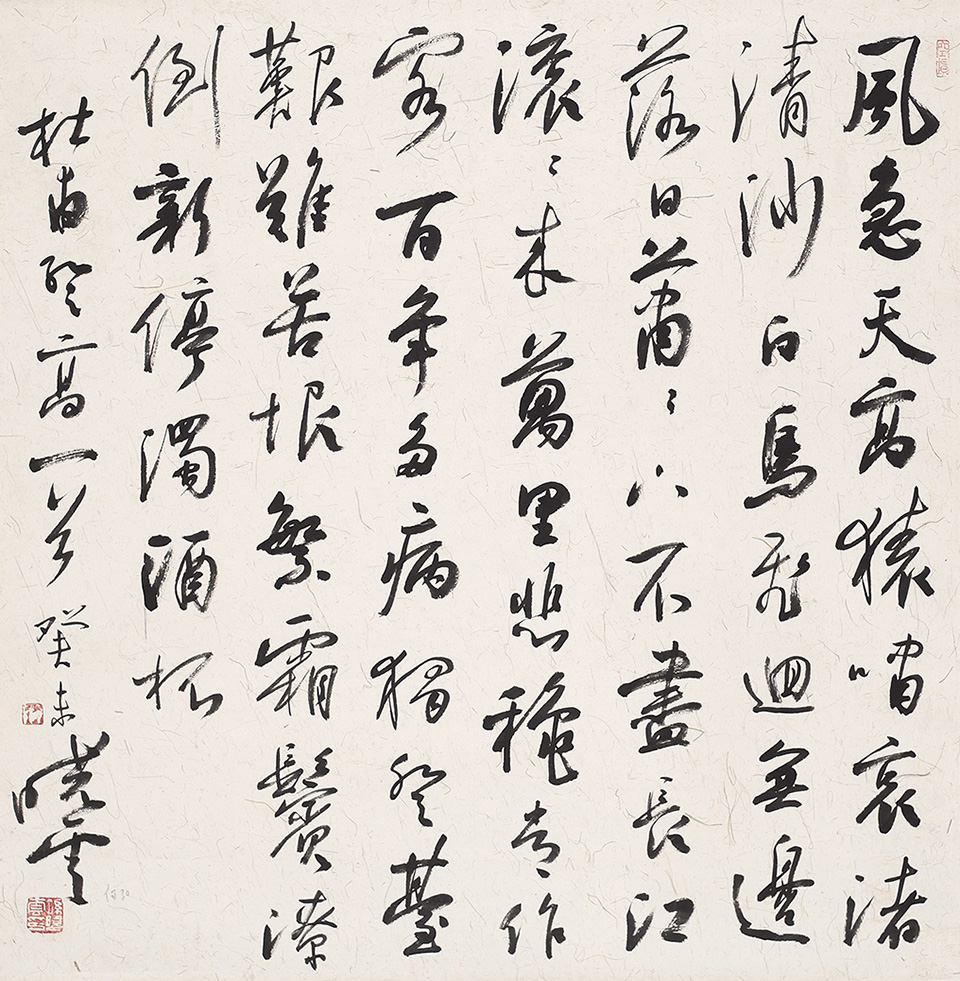 風急天高猿嘯哀渚
清沙白鳥飛迴無邊
落日蕭〻下不盡長江
滾〻来萬里悲穐常作
客百年多病獨登臺
艱難苦恨繁霜鬢潦
倒新停濁酒杯
杜甫登高一首 癸未 曉雲